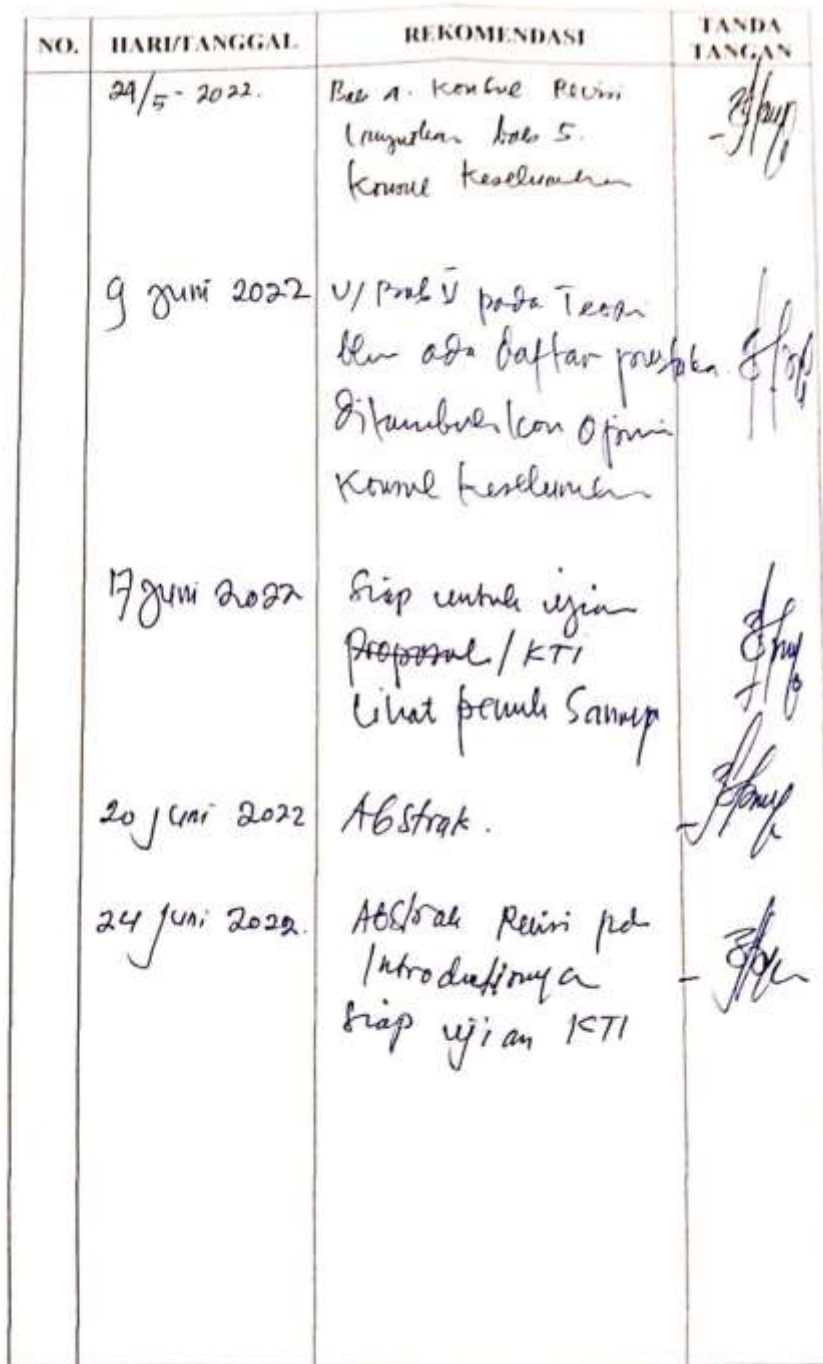 NO. HARI/TANGGAL REKOMENDASI TANDA TANGAN
29/5 - 2022. Bab 4. Konsul Revisi
bab 5.
Konsul Keseluruhan
9 Juni 2022 U/ Bab V pada Teori
blm ada daftar pustaka.
Ditambahkan Opini
Konsul keseluruhan
17 Juni 2022 Siap untuk ujian
Proposal / KTI
Lihat
20 Juni 2022 Abstrak.
24 Juni 2022. Abstrak Revisi pd
Introductionnya
Siap ujian KTI